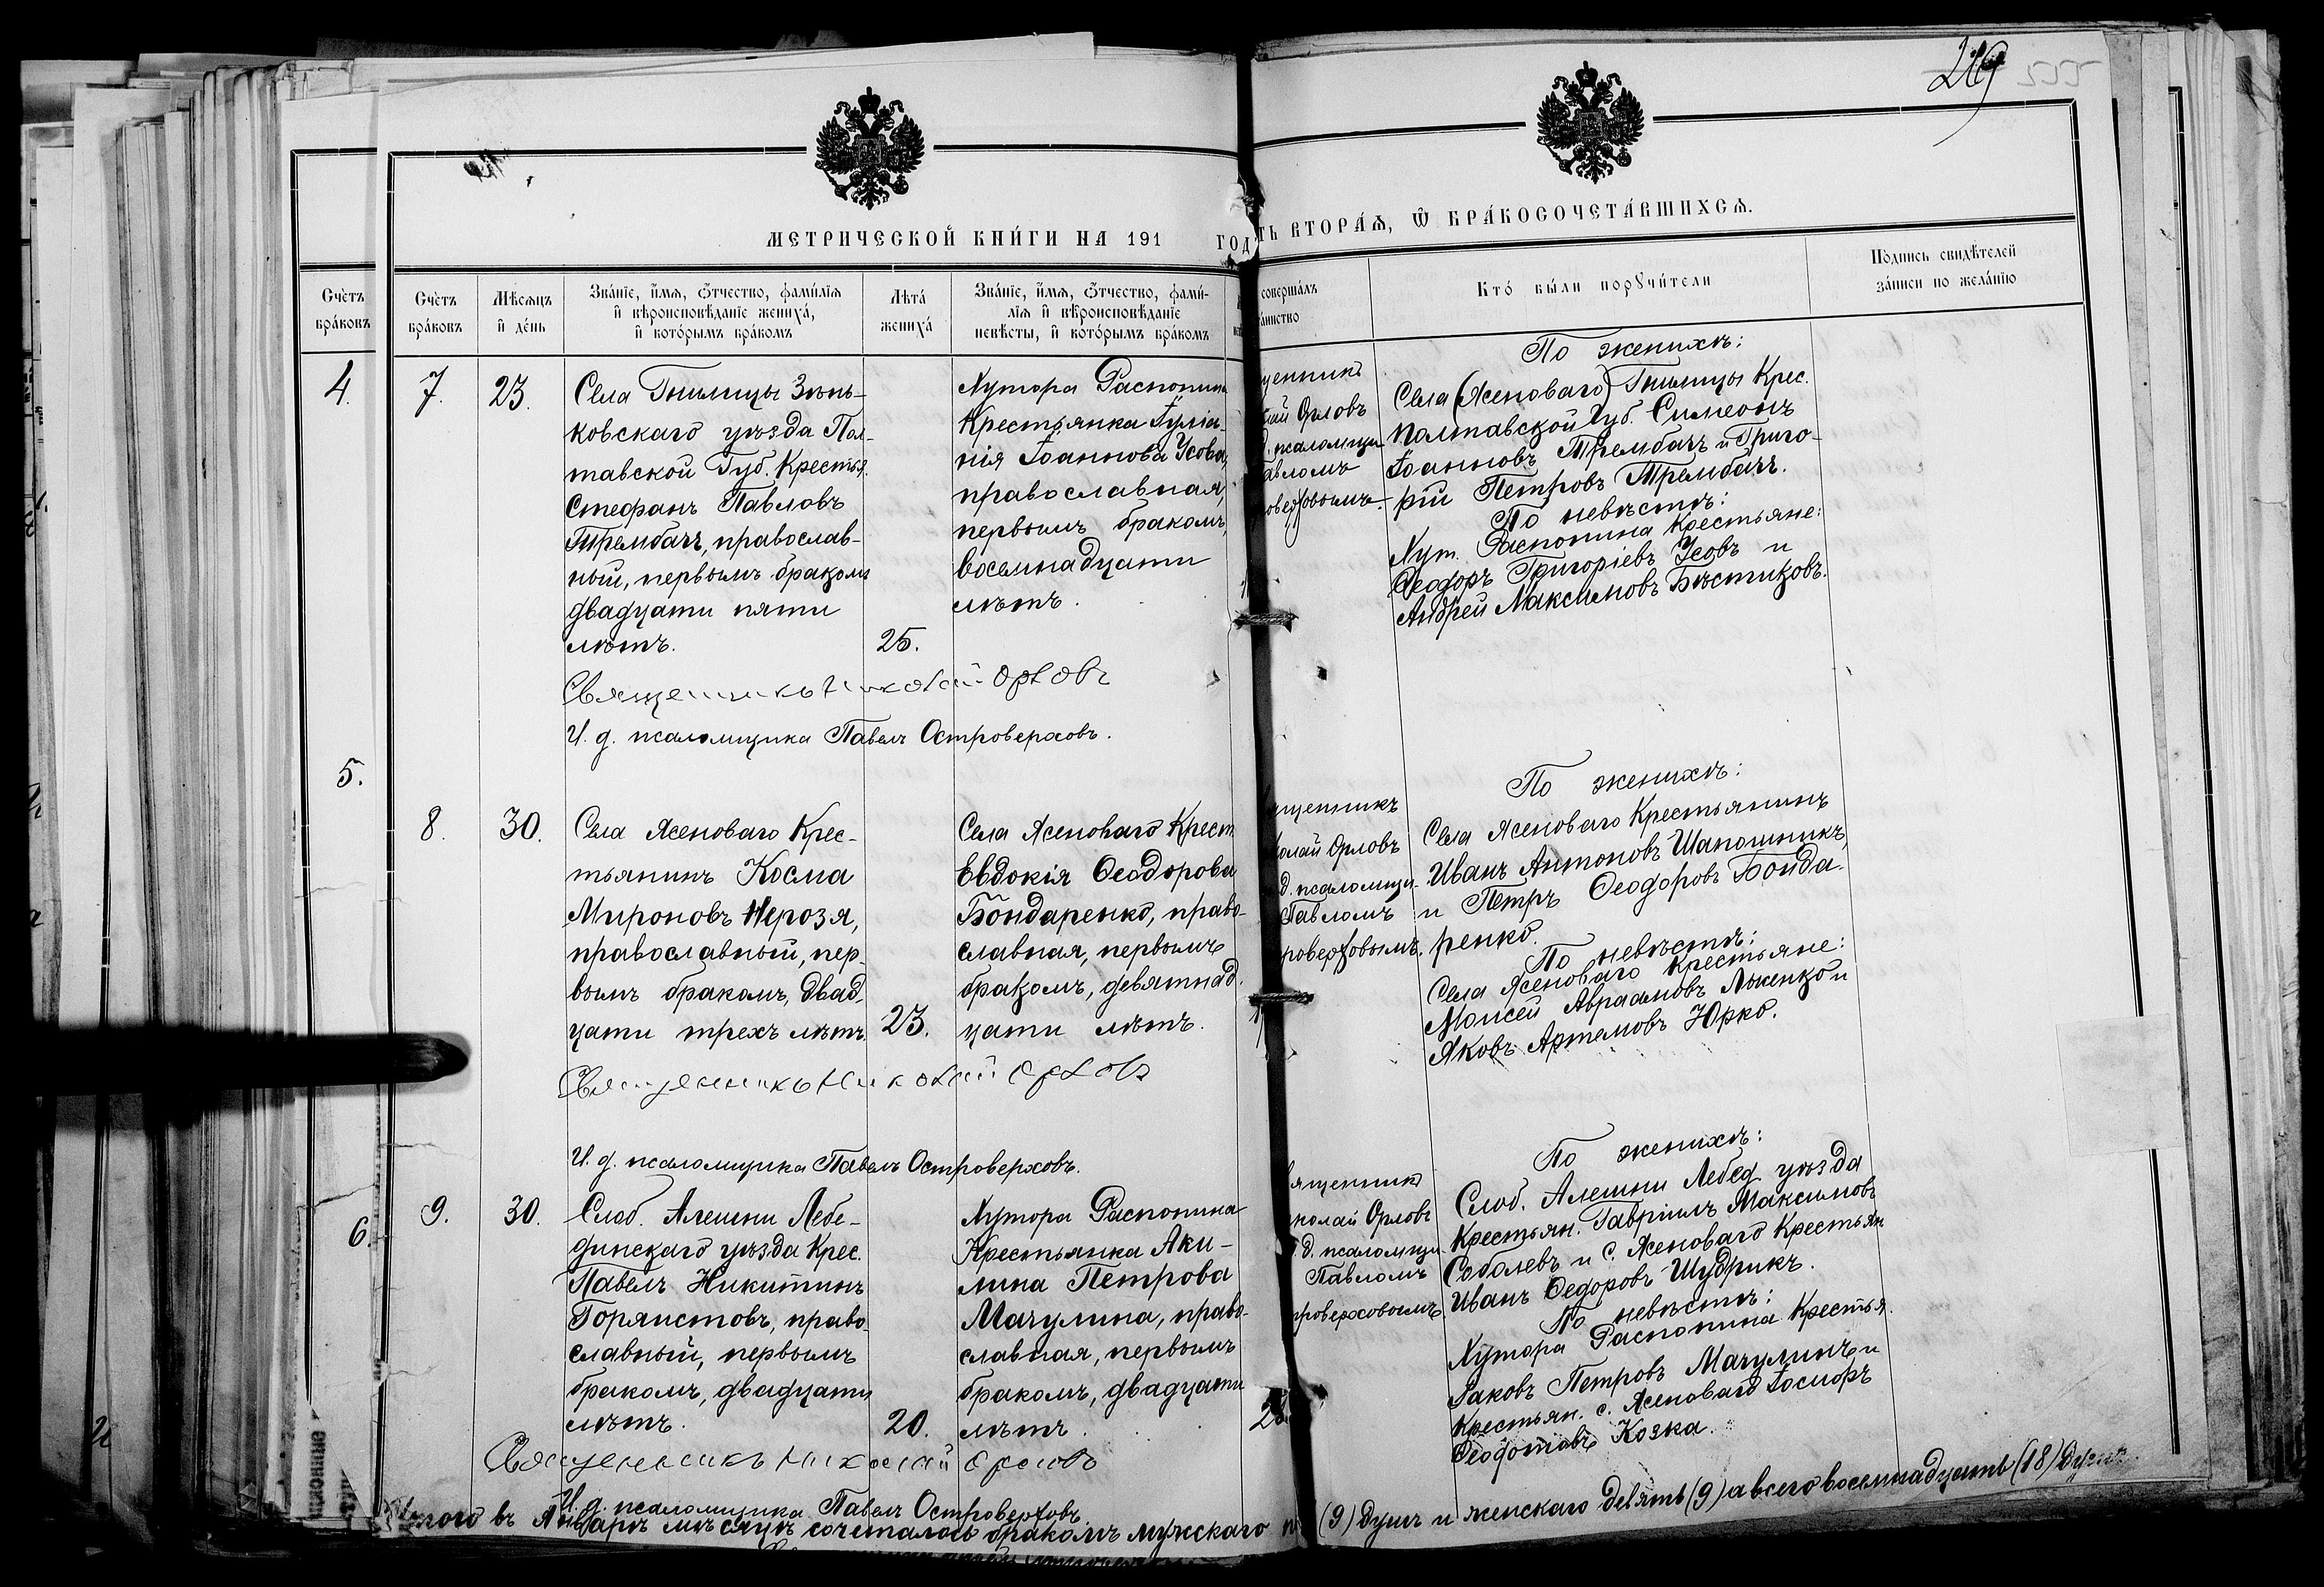 219
МЕТРИЧЕСКОЙ КНИ́ГИ НА 191 ГОД
ТЬ ВТОРА́Ѧ, Ѿ БРА́КОСОЧЕТА́ВШИХСѦ.
Сче́тъ бра́ковъ
4.
5.
6.
Сче́тъ
бра́ковъ
Мѣ́сѧцъ
и де́нь
Зва́нїе, и́мѧ, ѻ́тчество, фамилїѧ
и вѣроисповѣ́данїе жениха́,
и кото́рымъ бра́комъ
Лѣта́
жениха́
Зва́нїе, и́мѧ, ѻ́тчество, фами́-
лїѧ и вѣроисповѣ́данїе
невѣ́сты, и кото́рымъ бра́комъ
соверша́лъ
та́инство
Кто́ бы́ли порꙋчи́тели
По́дпись свидѣ́телей
за́писи по жела́нїю
7.
23.
Села Гнилицы Зѣнь-
ковскаго уѣзда Пол-
тавской Губ. Крестья.
Стефанъ Павловъ
Трембачъ, православ-
ный, первымъ бракомъ
двадцати пяти
лѣтъ.
25.
Хутора Распопина
Крестьянка Іуліа-
нія Іоаннова Усова,
православная,
первымъ бракомъ,
восемнадцати
лѣтъ.
щенникъ
лай Орловъ
д. псаломщи-
авломъ
оверховымъ.
По женихѣ:
Села (Ясеноваго) Гнилицы Крес.
Полтавской Губ. Симеонъ
Іоанновъ Трембачъ и Григо-
рій Петровъ Трембачъ.
По невѣстѣ:
Хут. Распопина Крестьяне:
Ѳеодоръ Григоріевъ Усовъ и
Андрей Максимовъ Бѣстиковъ.
Священникъ Николай Орловъ
И. д. псаломщика Павелъ Островерховъ.
8.
30.
Села Ясеноваго Крес-
тьянинъ Косма
Мироновъ Нерозя,
православный, пер-
вымъ бракомъ, двад-
цати трехъ лѣтъ.
23.
Села Ясеноваго Крест.
Евдокія Ѳеодорова
Бондаренко, право-
славная, первымъ
бракомъ, девятнад-
цати лѣтъ.
щенникъ
олай Орловъ
д. псаломщи-
Павломъ
роверховымъ.
По женихѣ:
Села Ясеноваго Крестьянинъ
Иванъ Антоновъ Шапошникъ,
и Петръ Ѳеодоровъ Бонда-
ренко.
По невѣстѣ:
Села Ясеноваго крестьяне:
Моисей Авраамовъ Лысенко и
Яковъ Артемовъ Юрко.
Священникъ Николай Орловъ
И. д. псаломщика Павелъ Островерховъ.
9.
30.
Слоб. Алешни Лебе-
динскаго уѣзда Крес.
Павелъ Никитинъ
Горяистовъ, право-
славный, первымъ
бракомъ, двадцати
лѣтъ.
20.
Хутора Распопина
Крестьянка Аки-
лина Петрова
Мачулина, право-
славная, первымъ
бракомъ, двадцати
лѣтъ.
ященникъ
иколай Орловъ
д. псаломщи-
Павломъ
троверховымъ.
По женихѣ:
Слоб. Алешни Лебед. уѣзда
Крестьян. Гавріилъ Максимовъ
Соболевъ и С. Ясеноваго Крестьян
Иванъ Ѳедоровъ Шудрикъ.
По невѣстѣ:
Хутора Распопина Крестья.
Іаковъ Петровъ Мачулинъ и
Крестьян. с. Ясеноваго Іосифъ
Ѳеодотовъ Козка.
Священникъ Николай Орловъ
И. д. псаломщика Павелъ Островерховъ.
Итого въ Январѣ мѣсяцѣ сочеталось бракомъ мужскаго (9) душъ и женскаго девять (9) а всего восемнадцать (18) душъ.